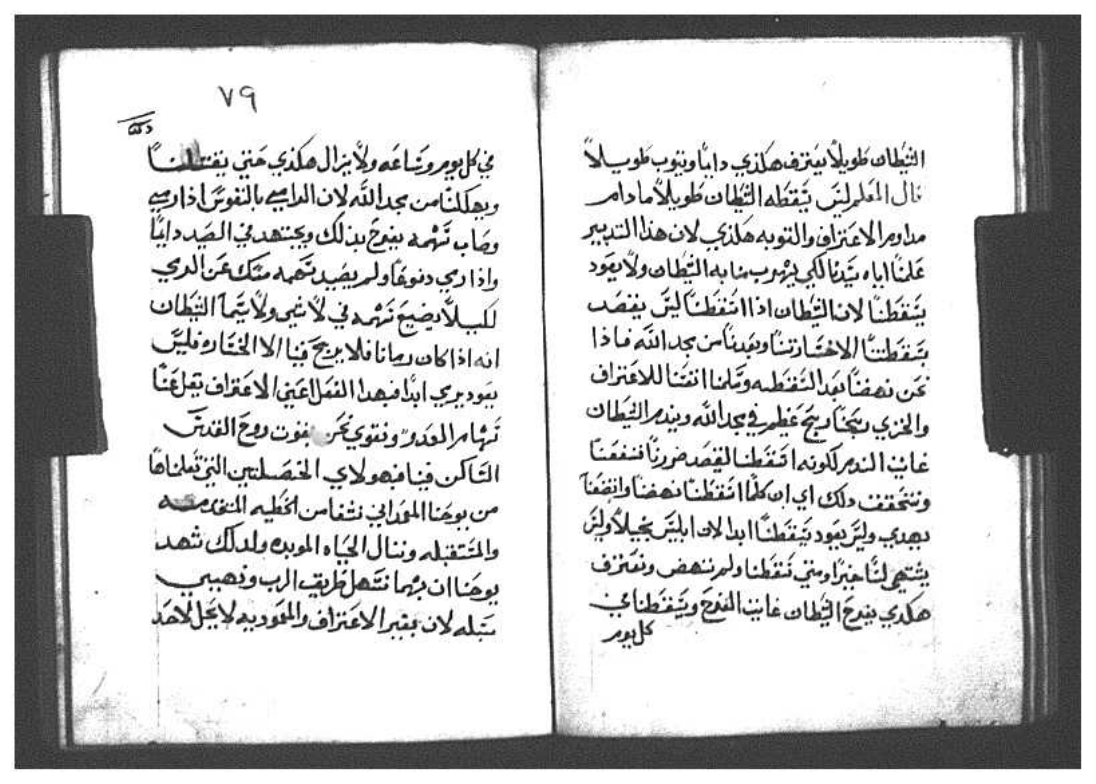 الشيطان طويلاً يعترف هكذي دايماً ويتوب طويلاً
قال المعلم ليس يسقطه الشيطان طويلاً ما دام
مداوم الاعتراف والتوبه هكذي لان هذا التدبير
علمنا اياه سيدنا لكي يهرب منا به الشيطان ولا يعود
يسقطنا لان الشيطان اذا اسقطنا ليس يقصد
بسقطتنا الا خسارتنا وبعدنا من مجد الله فاذا
نحن نهضنا بعد السقطه وقلنا انفسنا للاعتراف
والخزي ربحنا ربح عظيم في مجد الله ويندم الشيطان
غايت الندم لكونه اسقطنا لقصد ضررنا فنفعنا
ونتحقق دلك اي ان كلما اسقطنا نهضنا واتضعنا
بهدي وليس يعود يسقطنا ابدا لان ابليس بخيلاً وليس
يشتهي لنا خيرا ومتي سقطنا ولم ننهض ونعترف
هكدي يفرح الشيطان غايت الفرح ويسقطنا في
كل يوم
٧٩
في كل يوم وساعه ولا يزال هكذي حتي يقتلنا
ويهلكنا من مجد الله لان الرامي بالقوس اذا رمي
وصاب سهمه يفرح بذلك ويجتهد في الصيد دايماً
واذا رمي دفوعاً ولم يصيد سهمه مسك عن الرمي
لكيلا يضيع سهمه في لا شي ولا سيما الشيطان
انه اذا كان رمانا فلا يربح فينا الا الخساره فليس
يعود يرمي ابدا فبهدا الفعل اعني الاعتراف تقل عنا
سهام العدو ونقوي نحن بقوت روح القدس
الساكن فينا فبهولاي الخصلتين التي تعلمناها
من يوحنا المعمداني نشفا من الخطيه المتقدمه
والمستقبله وننال الحياه الموبده ولدلك شهد
يوحنا ان بهما تسهل طريق الرب ونهيي
سبله لان بغير الاعتراف والمعموديه لا يحل لاحد